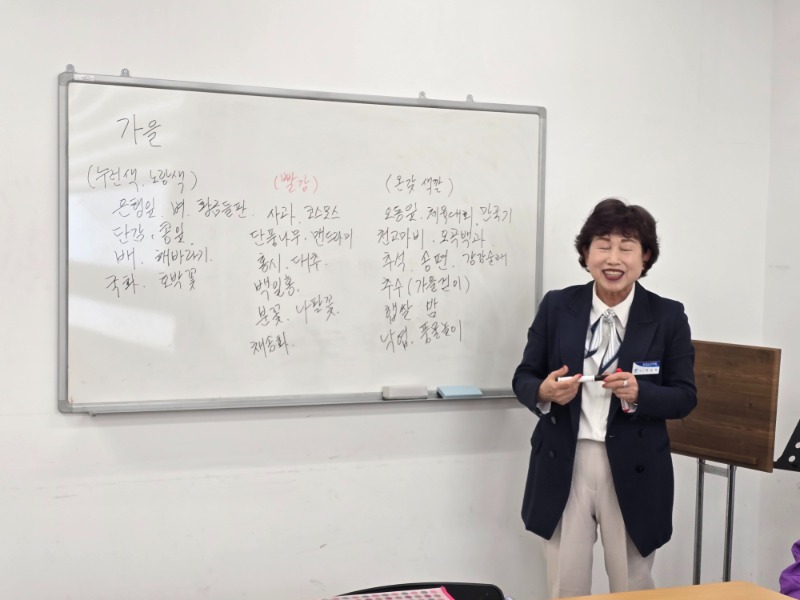 가을
(누런색, 노랑색)
은행잎, 벼, 황금들판.
단감, 콩잎.
배, 해바라기.
국화, 호박꽃
(빨강)
사과. 코스모스
단풍나무. 맨드라미
홍시. 대추.
백일홍.
분꽃. 나팔꽃.
채송화.
(온갖 색깔)
오동잎. 체육대회. 만국기
천고마비. 오곡백과
추석. 송편. 강강술래
추수(가을걷이)
햅쌀 밤
낙엽. 풍물놀이